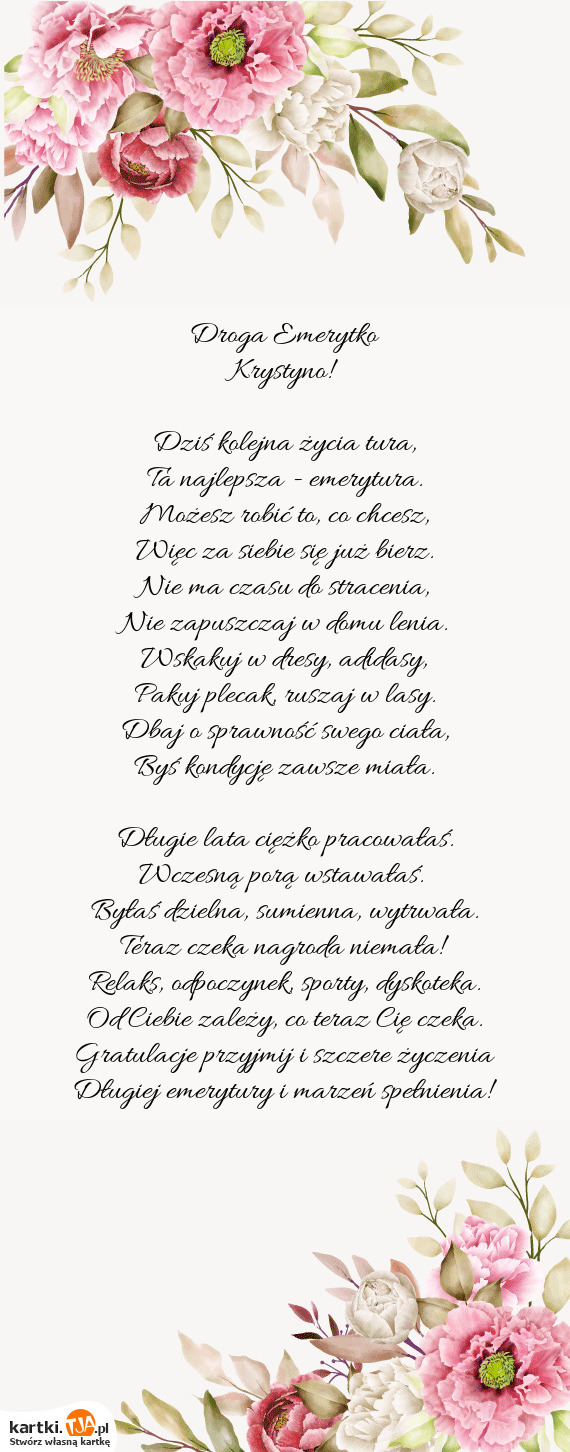 Droga Emerytko
Krystyno!
Dziś kolejna życia tura,
Ta najlepsza - emerytura.
Możesz robić to, co chcesz,
Więc za siebie się już bierz.
Nie ma czasu do stracenia,
Nie zapuszczaj w domu lenia.
Wskakuj w dresy, adidasy,
Pakuj plecak, ruszaj w lasy.
Dbaj o sprawność swego ciała,
Byś kondycję zawsze miała.
Długie lata ciężko pracowałaś.
Wczesną porą wstawałaś.
Byłaś dzielna, sumienna, wytrwała.
Teraz czeka nagroda niemała!
Relaks, odpoczynek, sporty, dyskoteka.
Od Ciebie zależy, co teraz Cię czeka.
Gratulacje przyjmij i szczere życzenia
Długiej emerytury i marzeń spełnienia!
kartki.TJA.pl
Stwórz własną kartkę